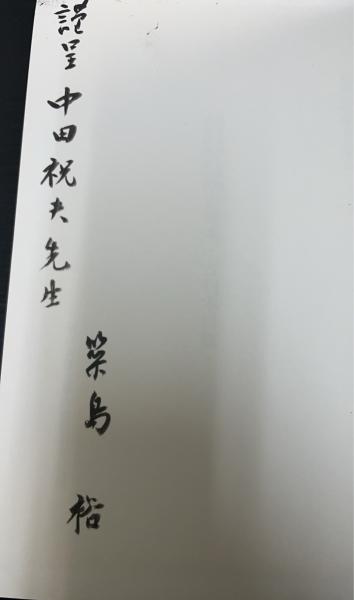 謹呈 中田祝夫先生
築島 裕